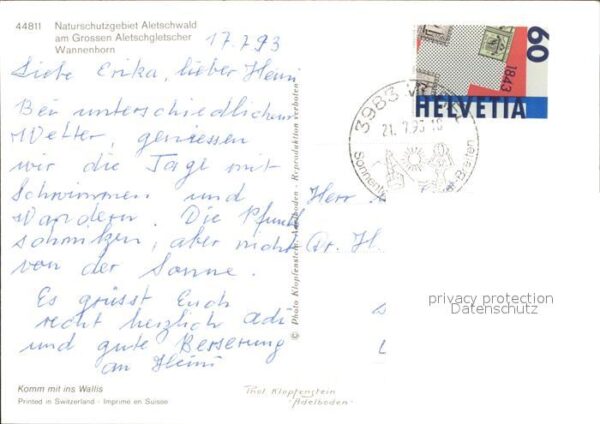 44811 Naturschutzgebiet Aletschwald
am Grossen Aletschgletscher
Wannenhorn
17.7.93
Liebe Erika, lieber Heini
Bei unterschiedlichem
Wetter, geniessen
wir die Tage mit
Schwimmen und
Wandern. Die Pfunde
schmilzen, aber nicht
von der Sonne.
Es grüsst Euch
recht herzlich
und gute Besserung
an Heini
Komm mit ins Wallis
Printed in Switzerland - Imprimé en Suisse
© Photo Klopfenstein - Adelboden - Reproduktion verboten
Phot Klopfenstein
"Adelboden"
60
1843
HELVETIA
3983
21. 7.93
Breiten
Herr
Dr. H.
privacy protection
Datenschutz